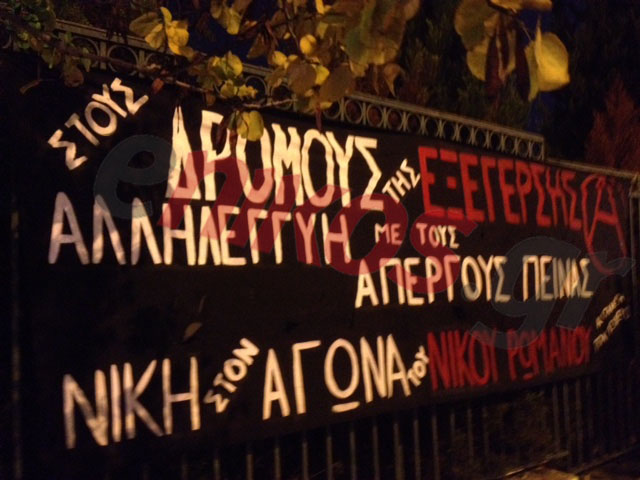 ΣΤΟΥΣ ΔΡΟΜΟΥΣ ΤΗΣ ΕΞΕΓΕΡΣΗΣ
ΑΛΛΗΛΕΓΓΥΗ ΜΕ ΤΟΥΣ
ΑΠΕΡΓΟΥΣ ΠΕΙΝΑΣ
ΝΙΚΗ ΣΤΟΝ ΑΓΩΝΑ ΤΟΥ ΝΙΚΟΥ ΡΩΜΑΝΟΥ
enikos.gr